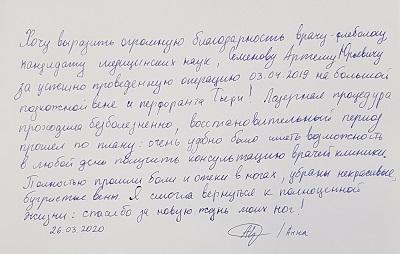 Хочу выразить огромную благодарность врачу-флебологу,
кандидату медицинских наук, Семенову Артему Юрьевичу
за успешно проведенную операцию 03.04.2019 на большой
подкожной вене и перфоранта Тьери! Лазерная процедура
проходила безболезненно, восстановительный период
прошел по плану: очень удобно было иметь возможность
в любой день получить консультацию врачей клиники.
Полностью прошли боли и отеки в ногах, убраны некрасивые,
бугристые вены. Я смогла вернуться к полноценной
жизни: спасибо за новую жизнь моих ног!
26.03.2020 /Анна